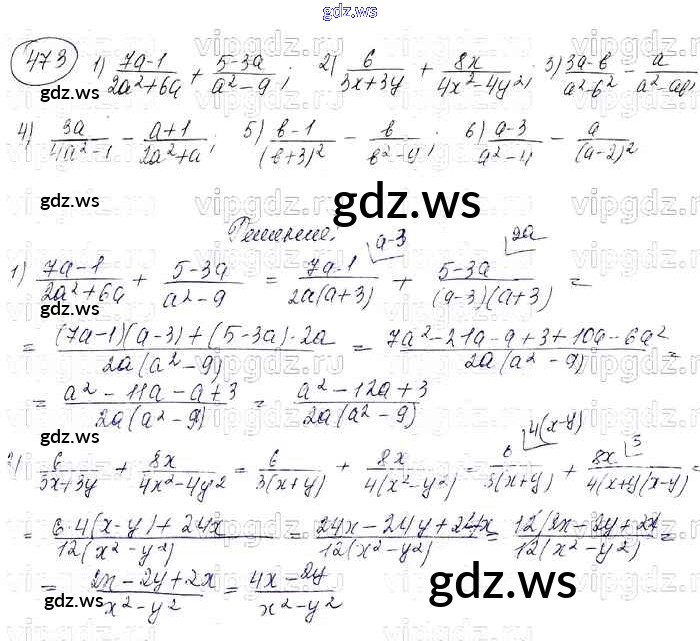 gdz.ws
473 1) (7a-1)/(2a²+6a) + (5-3a)/(a²-9); 2) 6/(3x+3y) + 8x/(4x²-4y²); 3) (3a-b)/(a²-b²) - a/(a²-ab);
4) 3a/(4a²-1) - (a+1)/(2a²+a); 5) (b-1)/(b+3)² - b/(b²-9); 6) (a-3)/(a²-4) - a/(a-2)²
gdz.ws gdz.ws
Решение.
1) (7a-1)/(2a²+6a) + (5-3a)/(a²-9) = (7a-1)/(2a(a+3)) [a-3 + (5-3a)/((a-3)(a+3)) [2a =
= ((7a-1)(a-3)+(5-3a)·2a)/(2a(a²-9)) = (7a²-21a-a+3+10a-6a²)/(2a(a²-9)) =
= (a²-11a-a+3)/(2a(a²-9)) = (a²-12a+3)/(2a(a²-9))
gdz.ws gdz.ws
2) 6/(3x+3y) + 8x/(4x²-4y²) = 6/(3(x+y)) + 8x/(4(x²-y²)) = 6/(3(x+y)) [4(x-y) + 8x/(4(x+y)(x-y)) [3 =
= (6·4(x-y)+24x)/(12(x²-y²)) = (24x-24y+24x)/(12(x²-y²)) = 12(2x-2y+2x)/(12(x²-y²)) =
= (2x-2y+2x)/(x²-y²) = (4x-2y)/(x²-y²)
gdz.ws gdz.ws